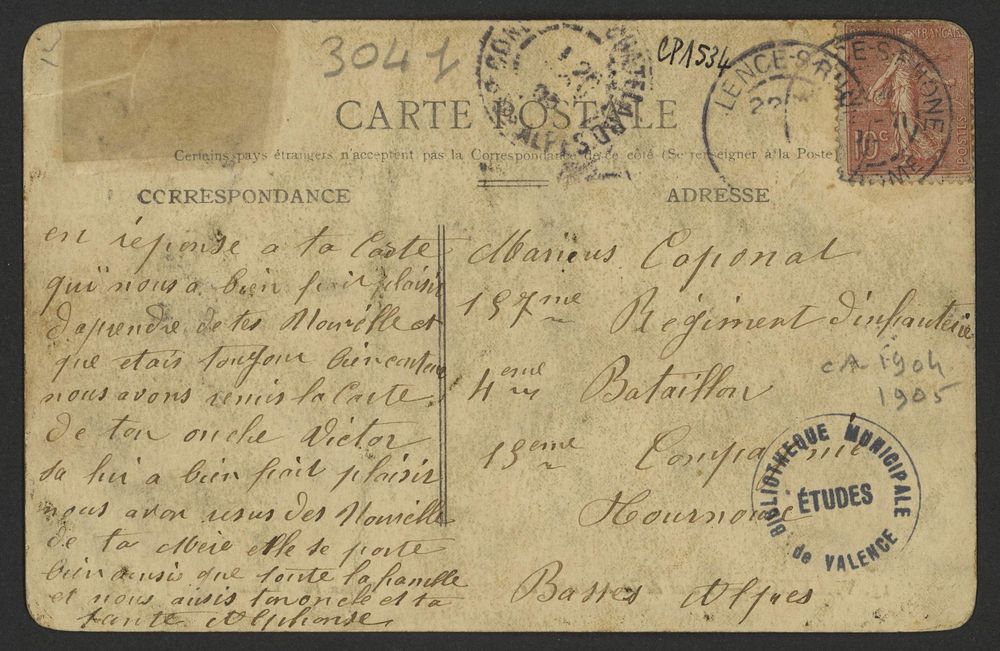 3041
CP1534
CARTE POSTALE
Certains pays étrangers n'acceptent pas la Correspondance de ce côté (Se renseigner à la Poste)
CORRESPONDANCE
en réponse a ta Carte
qui nous a bien fait plaisir
d'aprendre de tes Nouvelle et
que etais toujour bien contem
nous avons remis la Carte
de ton oncle Victor
sa lui a bien fait plaisir
nous avon resus des Nouvelle
de ta Mère elle se porte
bien ainsi que toute la famille
et nous ausis ton oncle et ta
tante Alphonse
ADRESSE
Marius Caponat
157me
Régiment d'infanterie
4eme Bataillon
15eme Conpagnie
Tournoux
Basses Alpes
CA 1904
1905
BIBLIOTHEQUE MUNICIPALE
ÉTUDES
de VALENCE
10c
POSTES